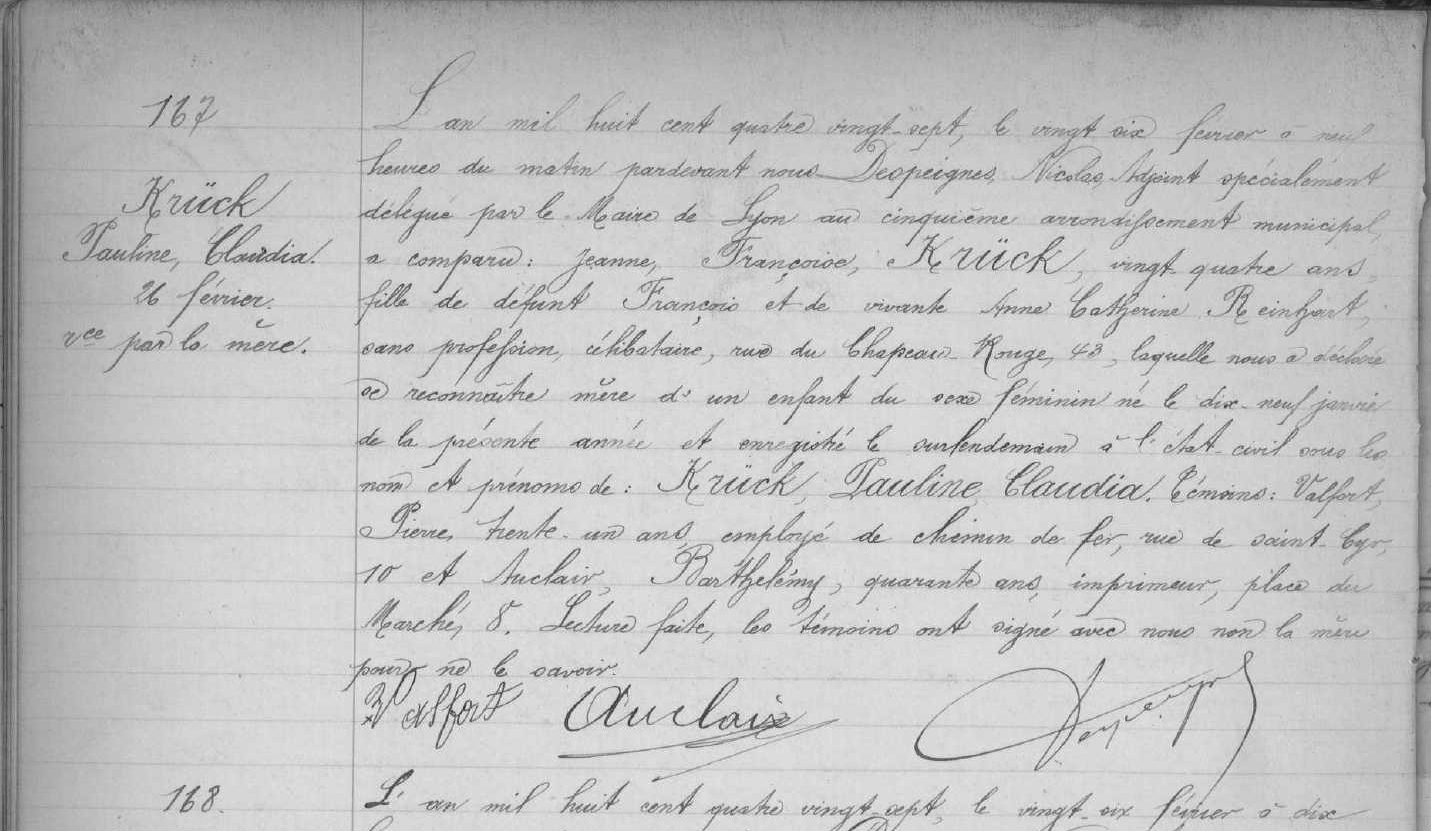 167
Krück
Pauline, Claudia.
26 février.
rce par la mère.
L'an mil huit cent quatre vingt-sept, le vingt six février à neuf
heures du matin pardevant nous Despeignes, Nicolas, Adjoint spécialement
délégué par le Maire de Lyon au cinquième arrondissement municipal,
a comparu: Jeanne, Françoise, Krück, vingt-quatre ans,
fille de défunt François et de vivante Anne Catherine Reinhart,
sans profession, célibataire, rue du Chapeau-Rouge, 43, laquelle nous a déclaré
se reconnaître mère d'un enfant du sexe féminin né le dix-neuf janvier
de la présente année et enregistré le surlendemain à l'état-civil sous les
nom et prénoms de: Krück, Pauline Claudia. Témoins: Valfort,
Pierre, trente-un ans, employé de chemin de fer, rue de saint-Cyr,
10 et Auclair, Barthélémy, quarante ans, imprimeur, place du
Marché, 8. Lecture faite, les témoins ont signé avec nous non la mère
pour ne le savoir.
Valfort Auclair Despeignes
168.
L'an mil huit cent quatre vingt-sept, le vingt-six février à dix